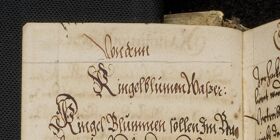 Von dem
Ringelblumen Wasser:
Ringel Blummen sollen im May